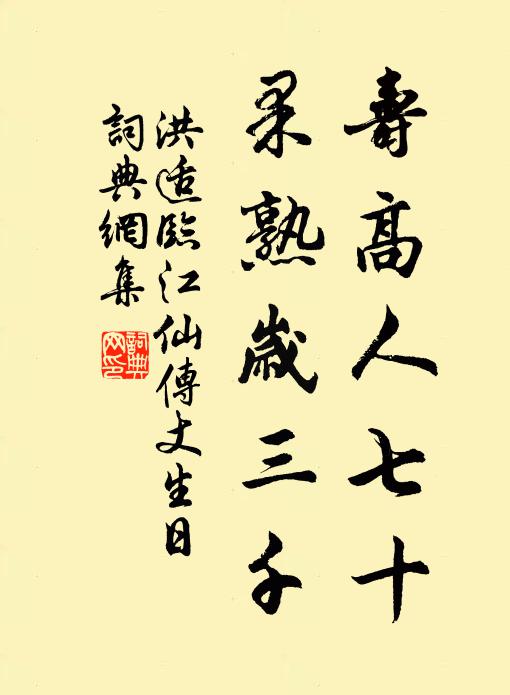 壽高人七十
果熟歲三千
洪适臨江仙傅丈生日
詞典網集
詞典網印